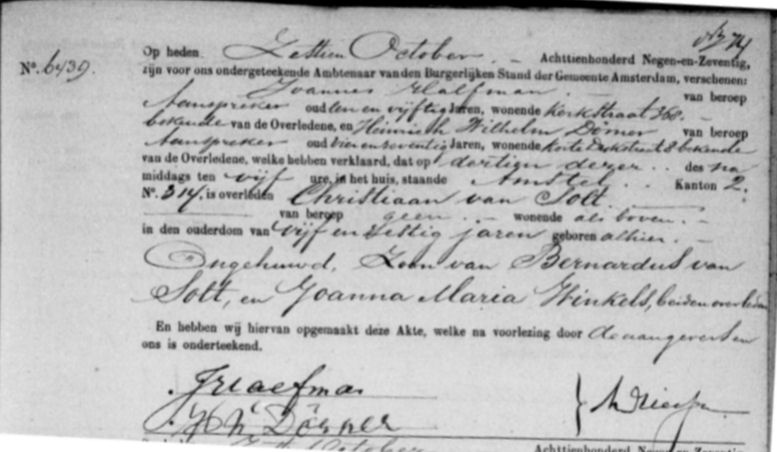 No. 6439.
Op heden Zestien October. – Achttienhonderd Negen-en-Zeventig,
zijn voor ons ondergeteekende Ambtenaar van den Burgerlijken Stand der Gemeente Amsterdam, verschenen:
Joannes Halfman. – van beroep
Aanspreker oud een en vijftig Jaren, wonende Kerkstraat 368. –
bekende van de Overledene, en Heinrich Wilhelm Dörner van beroep
Aanspreker oud vier en zeventig Jaren, wonende Korte bekende
van de Overledene, welke hebben verklaard, dat op dertien dezer. . des na
middags ten vijf ure, in het huis, staande Amstel. . Kanton 2.
No. 314, is overleden Christiaan van Solt. –
van beroep geen. – wonende als boven. –
in den ouderdom van vijf en zestig jaren geboren alhier. –
Ongehuwd, Zoon van Bernardus van
Solt, en Joanna Maria Winkels, beiden overleden
En hebben wij hiervan opgemaakt deze Akte, welke na voorlezing door de aangevers en
ons is onderteekend.
J Halfman
H W Dörner
October Achttienhonderd Negen-en-Zeventig